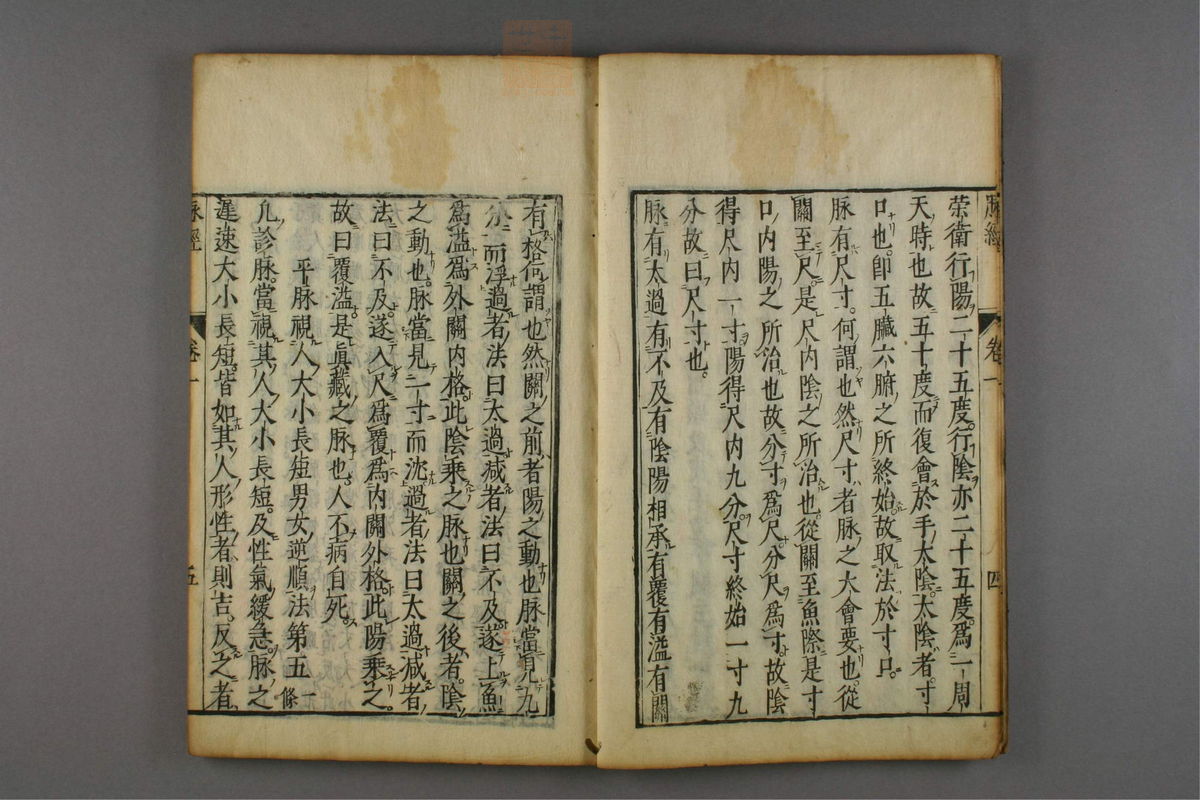 脉經
卷一
四
榮衛行陽二十五度。行陰亦二十五度。爲一周
天時也故五十度而復會於手太陰。太陰者。寸
口也。卽五臟六腑之所終始故取法於寸口。
脉有尺寸。何謂也然尺寸者脉之大會要也。從
關至尺。是尺内陰之所治也。從關至魚際。是寸
口内陽之所治也故分寸爲尺。分尺爲寸。故陰
得尺内一寸陽得尺内九分。尺寸終始一寸九
分故曰尺寸也。
脉有太過有不及有陰陽相承有覆有溢有關
有格何謂也然關之前者陽之動也脉當見九
分而浮。過者法曰太過減者法曰不及。遂上魚
爲溢爲外關内格。此陰乘之脉也關之後者。陰
之動也。脉當見一寸而沈。過者法曰太過減者
法曰不及。遂入尺爲覆爲内關外格。此陽乘之。
故曰覆溢是眞藏之脉也。人不病自死。
平脉視人大小長短男女逆順法第五 一條
凡診脉。當視其人大小長短。及性氣緩急。脉之
遲速大小長短。皆如其人形性者。則吉。反之者。
脉經
卷一
五